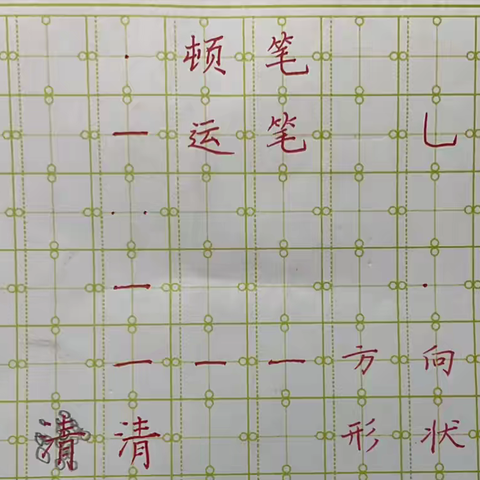 顿笔
一 运笔
一
一 一 一 方向
清 清 形状